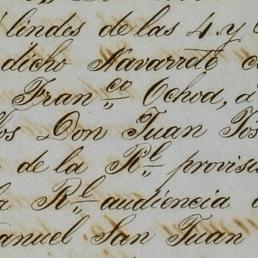 lindes de las 4. y
dicho Navarrete
Fran.co Ochoa, á
Don Juan
de la Rl. provis
Rl. audiencia
anuel San Juan